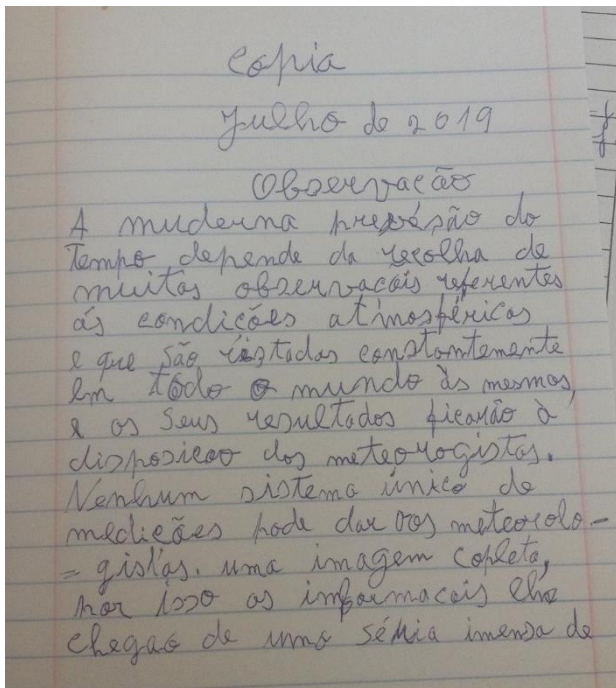 Copia
Julho de 2019
Observação
A muderna prevesão do
Tempo depende da recolha de
muitas observacais referentes
ás condicóes atmosféricas
e que são istadas constantemente
em todo o mundo às mesmas,
e os Seus resultados ficarão à
disposicao dos meteorogistas.
Nenhum sistema único de
medicões pode dar aos meteorolo-
= gistas. uma imagem copleta,
por isso as informacais lhe
chegaõ de uma séria imensa de